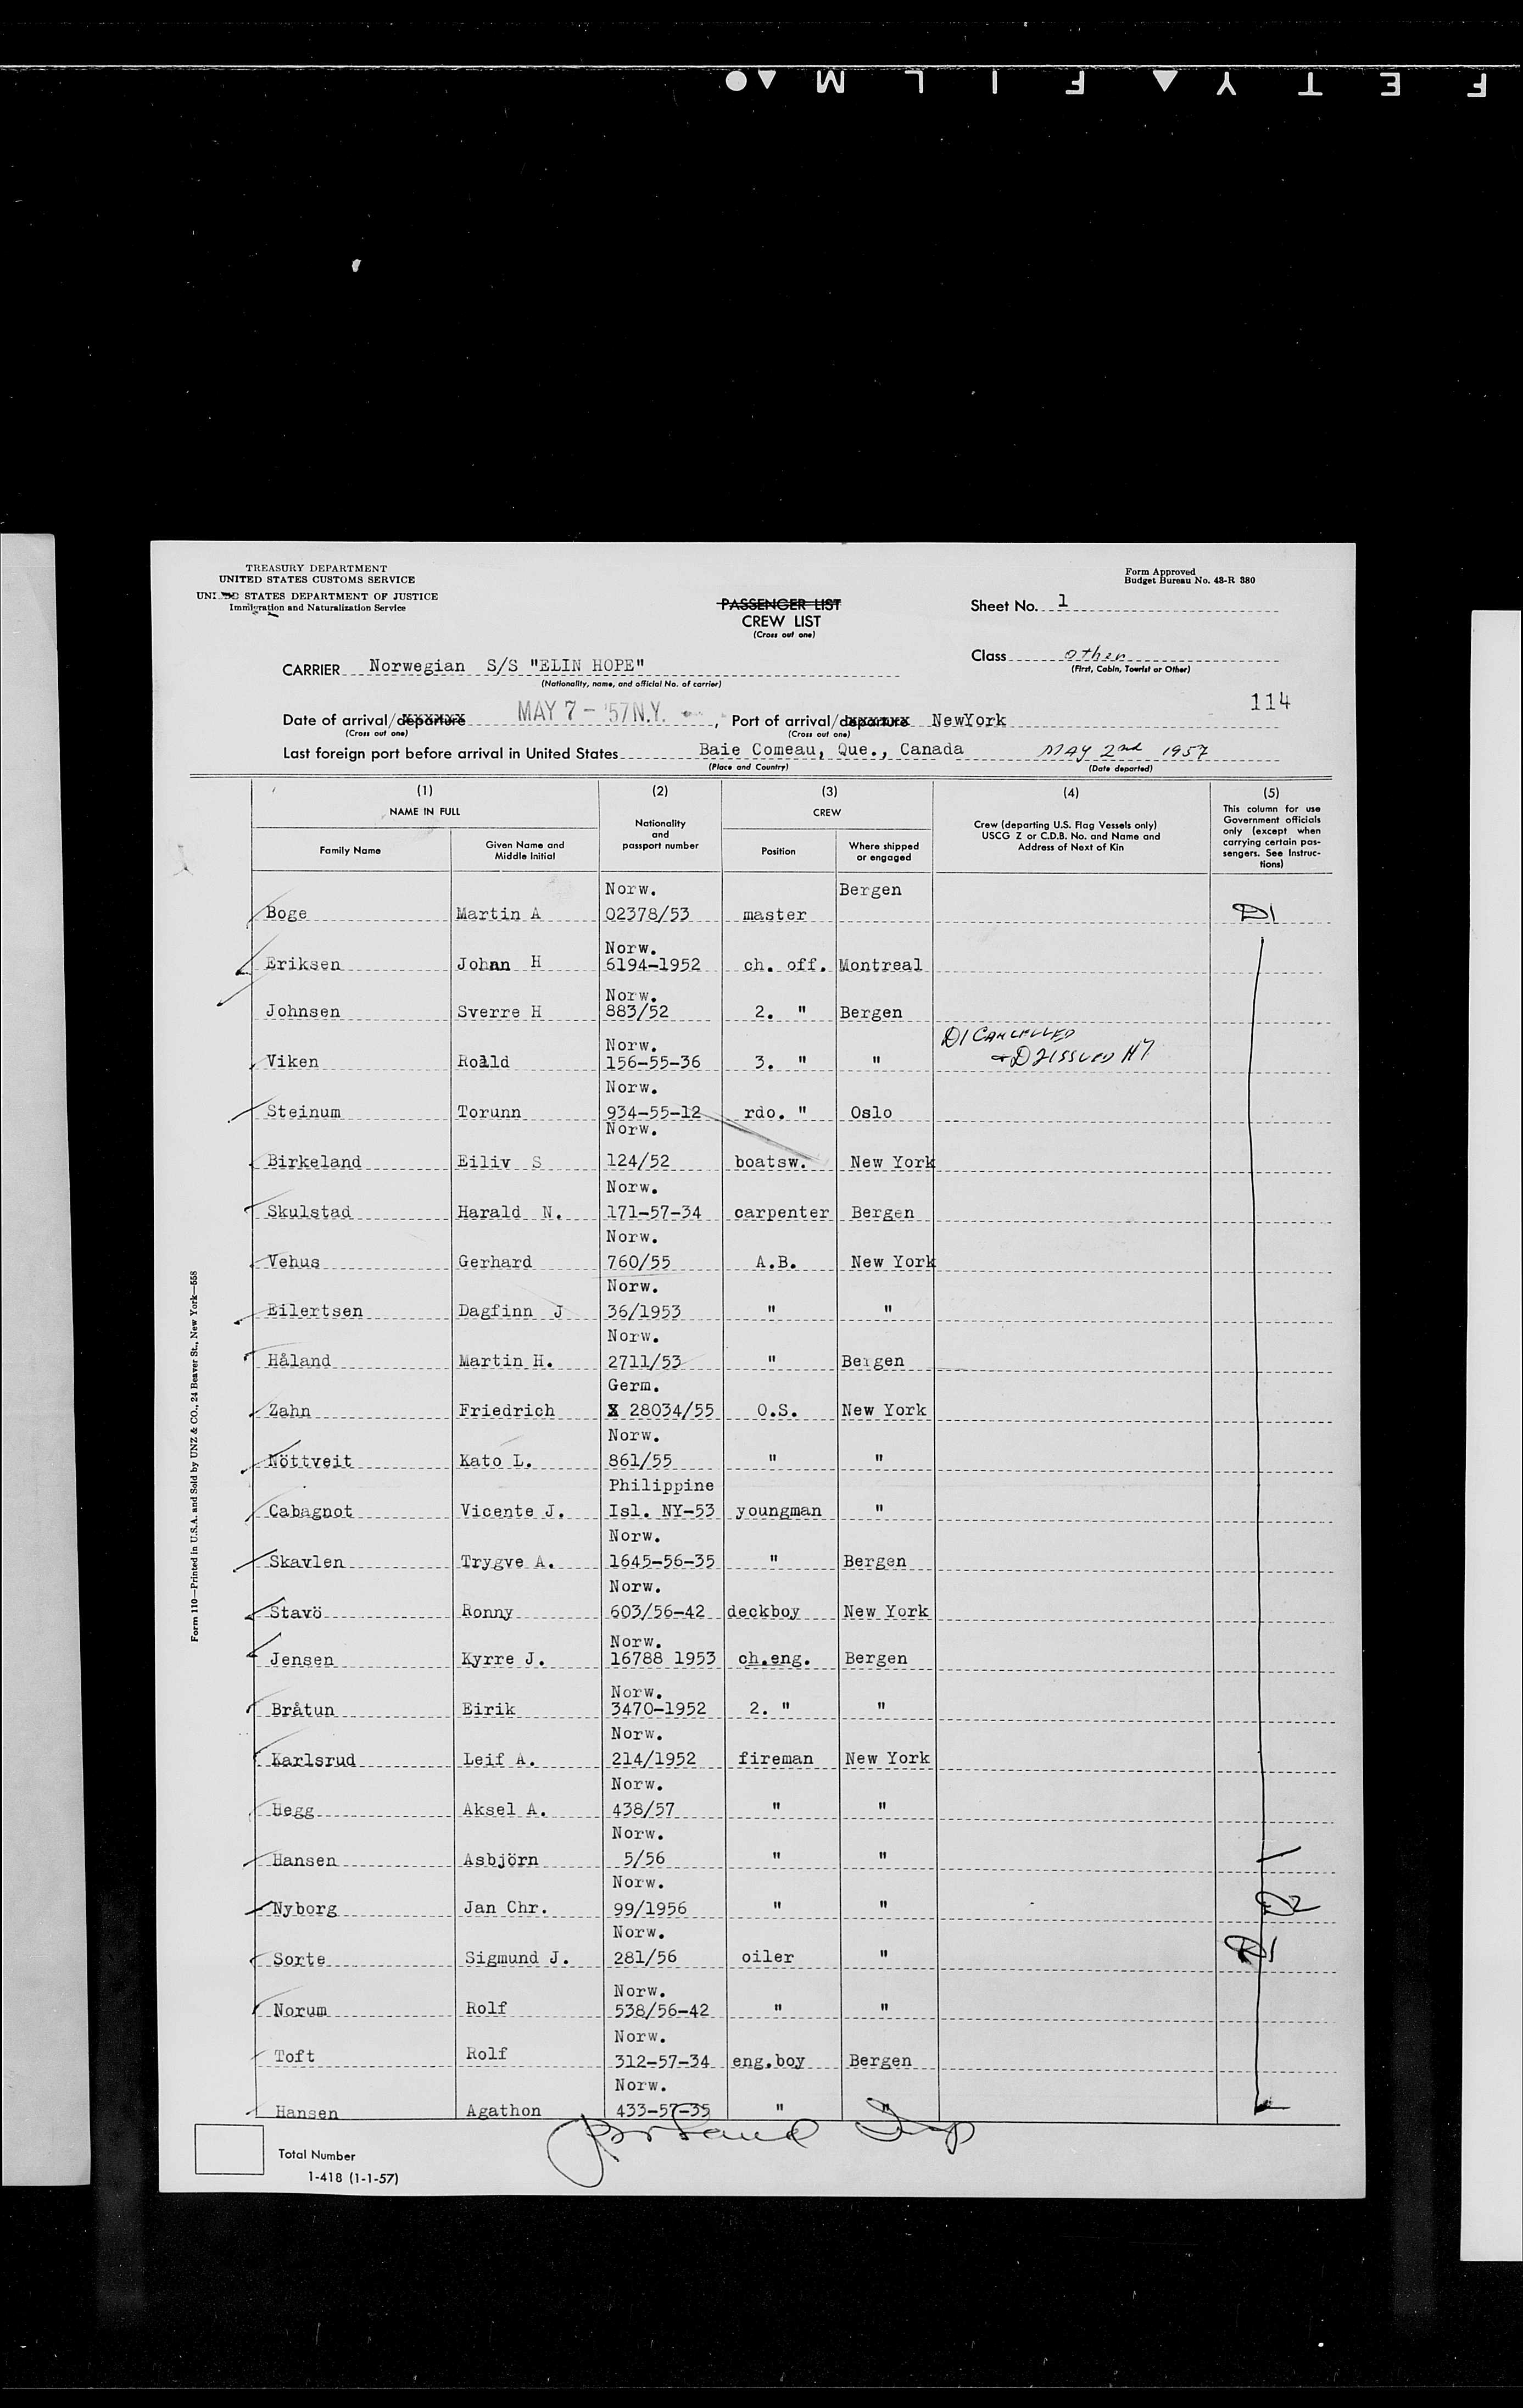 SAFETY ▲ FILM ▲●
TREASURY DEPARTMENT
UNITED STATES CUSTOMS SERVICE
UNITED STATES DEPARTMENT OF JUSTICE
Immigration and Naturalization Service
Form Approved
Budget Bureau No. 43-R 380
PASSENGER LIST
CREW LIST
(Cross out one)
Sheet No. 1
Class other
(First, Cabin, Tourist or Other)
CARRIER Norwegian S/S "ELIN HOPE"
(Nationality, name, and official No. of carrier)
114
Date of arrival/departure MAY 7 - '57 N.Y. , Port of arrival/departure NewYork
(Cross out one) (Cross out one)
Last foreign port before arrival in United States Baie Comeau, Que., Canada MAY 2nd 1957
(Place and Country) (Date departed)
(1) (2) (3) (4) (5)
NAME IN FULL
Family Name
Given Name and Middle Initial
Nationality and passport number
CREW
Position
Where shipped or engaged
Crew (departing U.S. Flag Vessels only) USCG Z or C.D.B. No. and Name and Address of Next of Kin
This column for use Government officials only (except when carrying certain passengers. See Instructions)
Norw. Bergen
Boge Martin A 02378/53 master D1
Norw.
Eriksen Johan H 6194-1952 ch. off. Montreal
Norw.
Johnsen Sverre H 883/52 2. " Bergen
D1 CANCELLED
Norw.
Viken Roald 156-55-36 3. " " + D2 ISSUED
Norw.
Steinum Torunn 934-55-12 rdo. " Oslo
Norw.
Birkeland Eiliv S 124/52 boatsw. New York
Norw.
Skulstad Harald N. 171-57-34 carpenter Bergen
Norw.
Vehus Gerhard 760/55 A.B. New York
Norw.
Eilertsen Dagfinn J 36/1953 " "
Norw.
Håland Martin H. 2711/53 " Bergen
Germ.
Zahn Friedrich X 28034/55 O.S. New York
Norw.
Nöttveit Kato L. 861/55 " "
Philippine
Cabagnot Vicente J. Isl. NY-53 youngman "
Norw.
Skavlen Trygve A. 1645-56-35 " Bergen
Norw.
Stavö Ronny 603/56-42 deckboy New York
Norw.
Jensen Kyrre J. 16788 1953 ch.eng. Bergen
Norw.
Bråtun Eirik 3470-1952 2. " "
Norw.
Karlsrud Leif A. 214/1952 fireman New York
Norw.
Hegg Aksel A. 438/57 " "
Norw.
Hansen Asbjörn 5/56 " "
Norw.
Nyborg Jan Chr. 99/1956 " " D2
Norw.
Sorte Sigmund J. 281/56 oiler " D1
Norw.
Norum Rolf 538/56-42 " "
Norw.
Toft Rolf 312-57-34 eng.boy Bergen
Norw.
Hansen Agathon 433-57-35 " "
Total Number
1-418 (1-1-57)
Form 110—Printed in U.S.A. and Sold by UNZ & CO., 24 Beaver St., New York—558